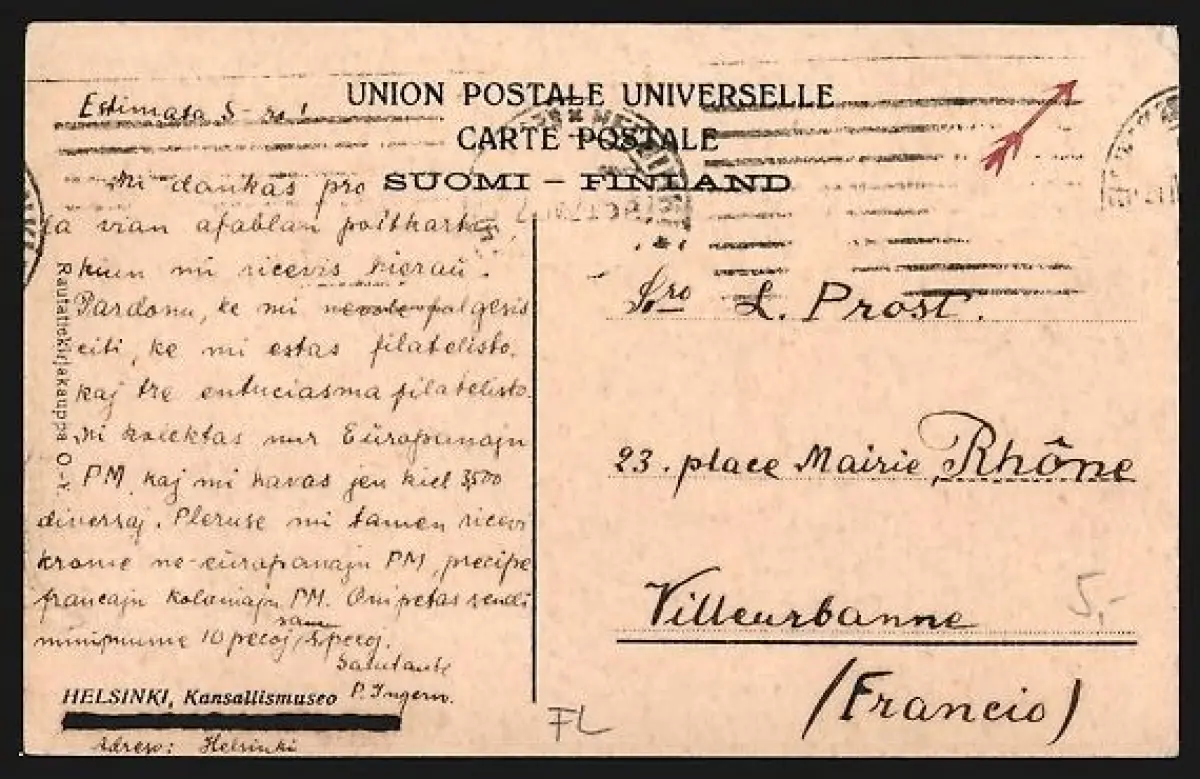 UNION POSTALE UNIVERSELLE
CARTE POSTALE
SUOMI – FINLAND
Estimata S-ro!
Mi dankas pro
la vian afablan poŝtkarton,
kiun mi ricevis hieraŭ.
Pardonu, ke mi
citi, ke mi estas filatelisto,
kaj tre entuciasma filatelisto.
Mi kolektas nur Eŭropanajn
PM, kaj mi havas jen kiel 3,500
diversaj. mi tamen ricevi
krome ne-eŭropanajn PM, precipe
francajn koloniajn PM. Oni petas sendi
minimume 10 pecoj
sam
Salutante
P. Ingerv.
HELSINKI, Kansallismuseo
Adreso: Helsinki
Rautatiekirjakauppa O.-Y.
Sro L. Prost.
23. place Mairie, Rhône
Villeurbanne
(Francio)
5,-
FL